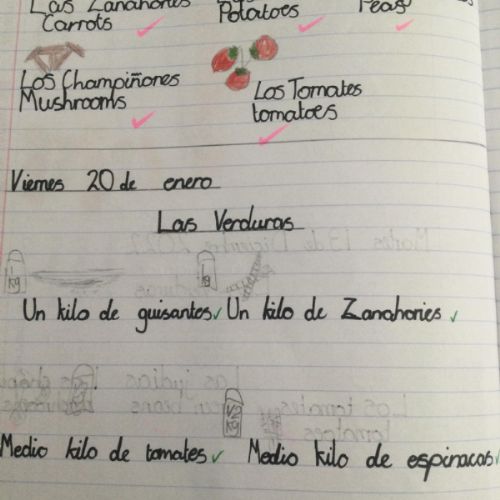 Las Zanahories
Carrots
Potatoes
Peas
Los Champiñones
Mushrooms
Los Tomates
tomatoes
Viernes 20 de enero
Las Verduras
1 kg
Un kilo de guisantes
Un kilo de Zanahories
Medio kilo de tomates
Medio kilo de espinacas